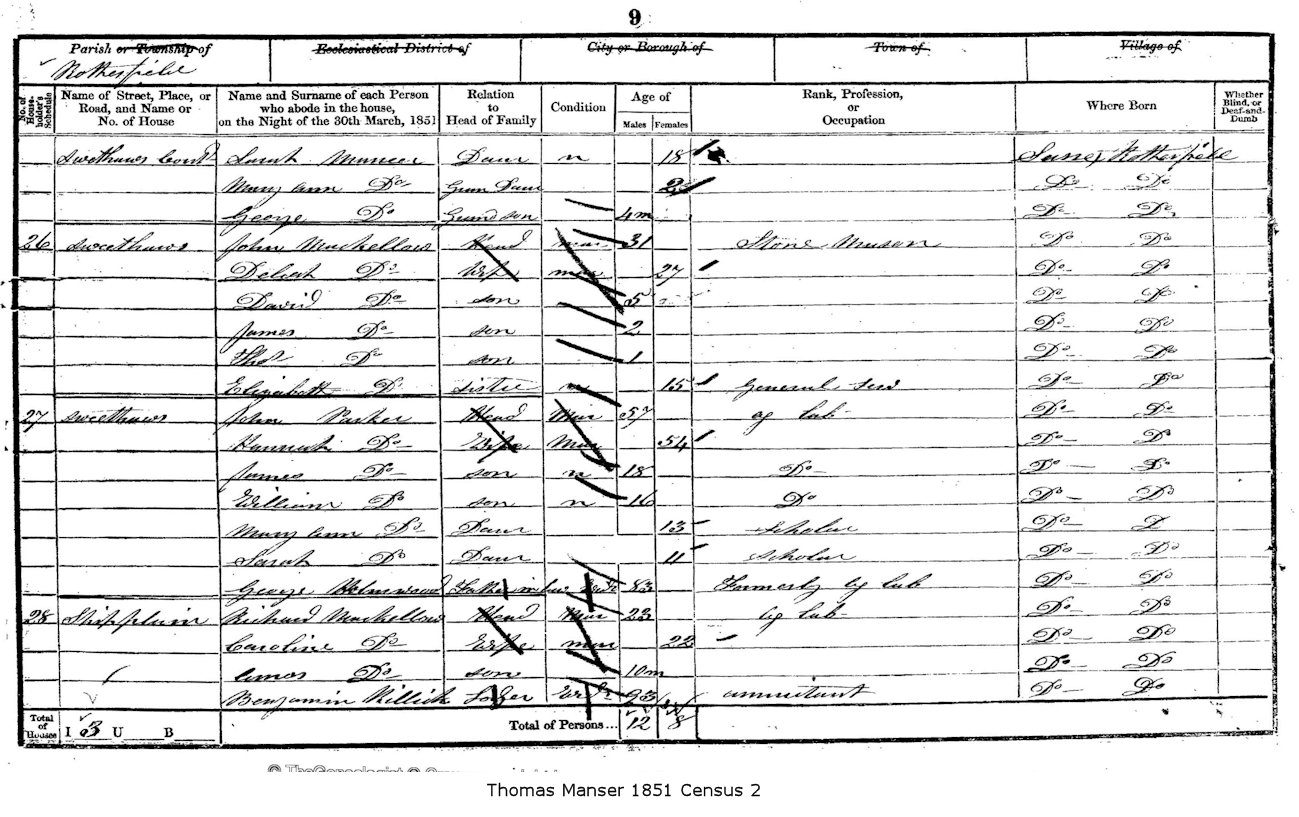 9
Parish or Township of Ecclesiastical District of City or Borough of Town of Village of
Rotherfield
No. of House-holder's Schedule Name of Street, Place, or Road, and Name or No. of House Name and Surname of each Person who abode in the house, on the Night of the 30th March, 1851 Relation to Head of Family Condition Age of Males Females Rank, Profession, or Occupation Where Born Whether Blind, or Deaf-and-Dumb
Sarah Daur n 18 Rotherfield
Mary Ann Do Daur Do Do
George Do Grandson 4m Do Do
26 Sweethaws John Muckellow Head mar 31 Stone Mason Do Do
Do Wife mar 27 Do Do
David Do son 5 Do Do
James Do son 2 Do Do
Thos Do son 1 Do Do
Elizabeth Do sister n 15 General Do Do
27 Sweethaws John Parker Head Mar 57 ag lab Do Do
Hannah Do Wife Mar 54 Do Do
James Do son n 18 Do Do Do
William Do son n 16 Do Do Do
Mary Ann Do Daur 13 scholar Do Do
Sarah Do Daur 11 scholar Do Do
George Holmwood Father in law 83 Formerly ag lab Do Do
28 Richard Muckellow Head Mar 23 ag lab Do Do
Caroline Do Wife mar 22 Do Do
Amos Do son 10m Do Do
Benjamin Killick annuitant Do Do
Total of Houses I 3 U B Total of Persons... 12 8
© TheGenealogist
Thomas Manser 1851 Census 2